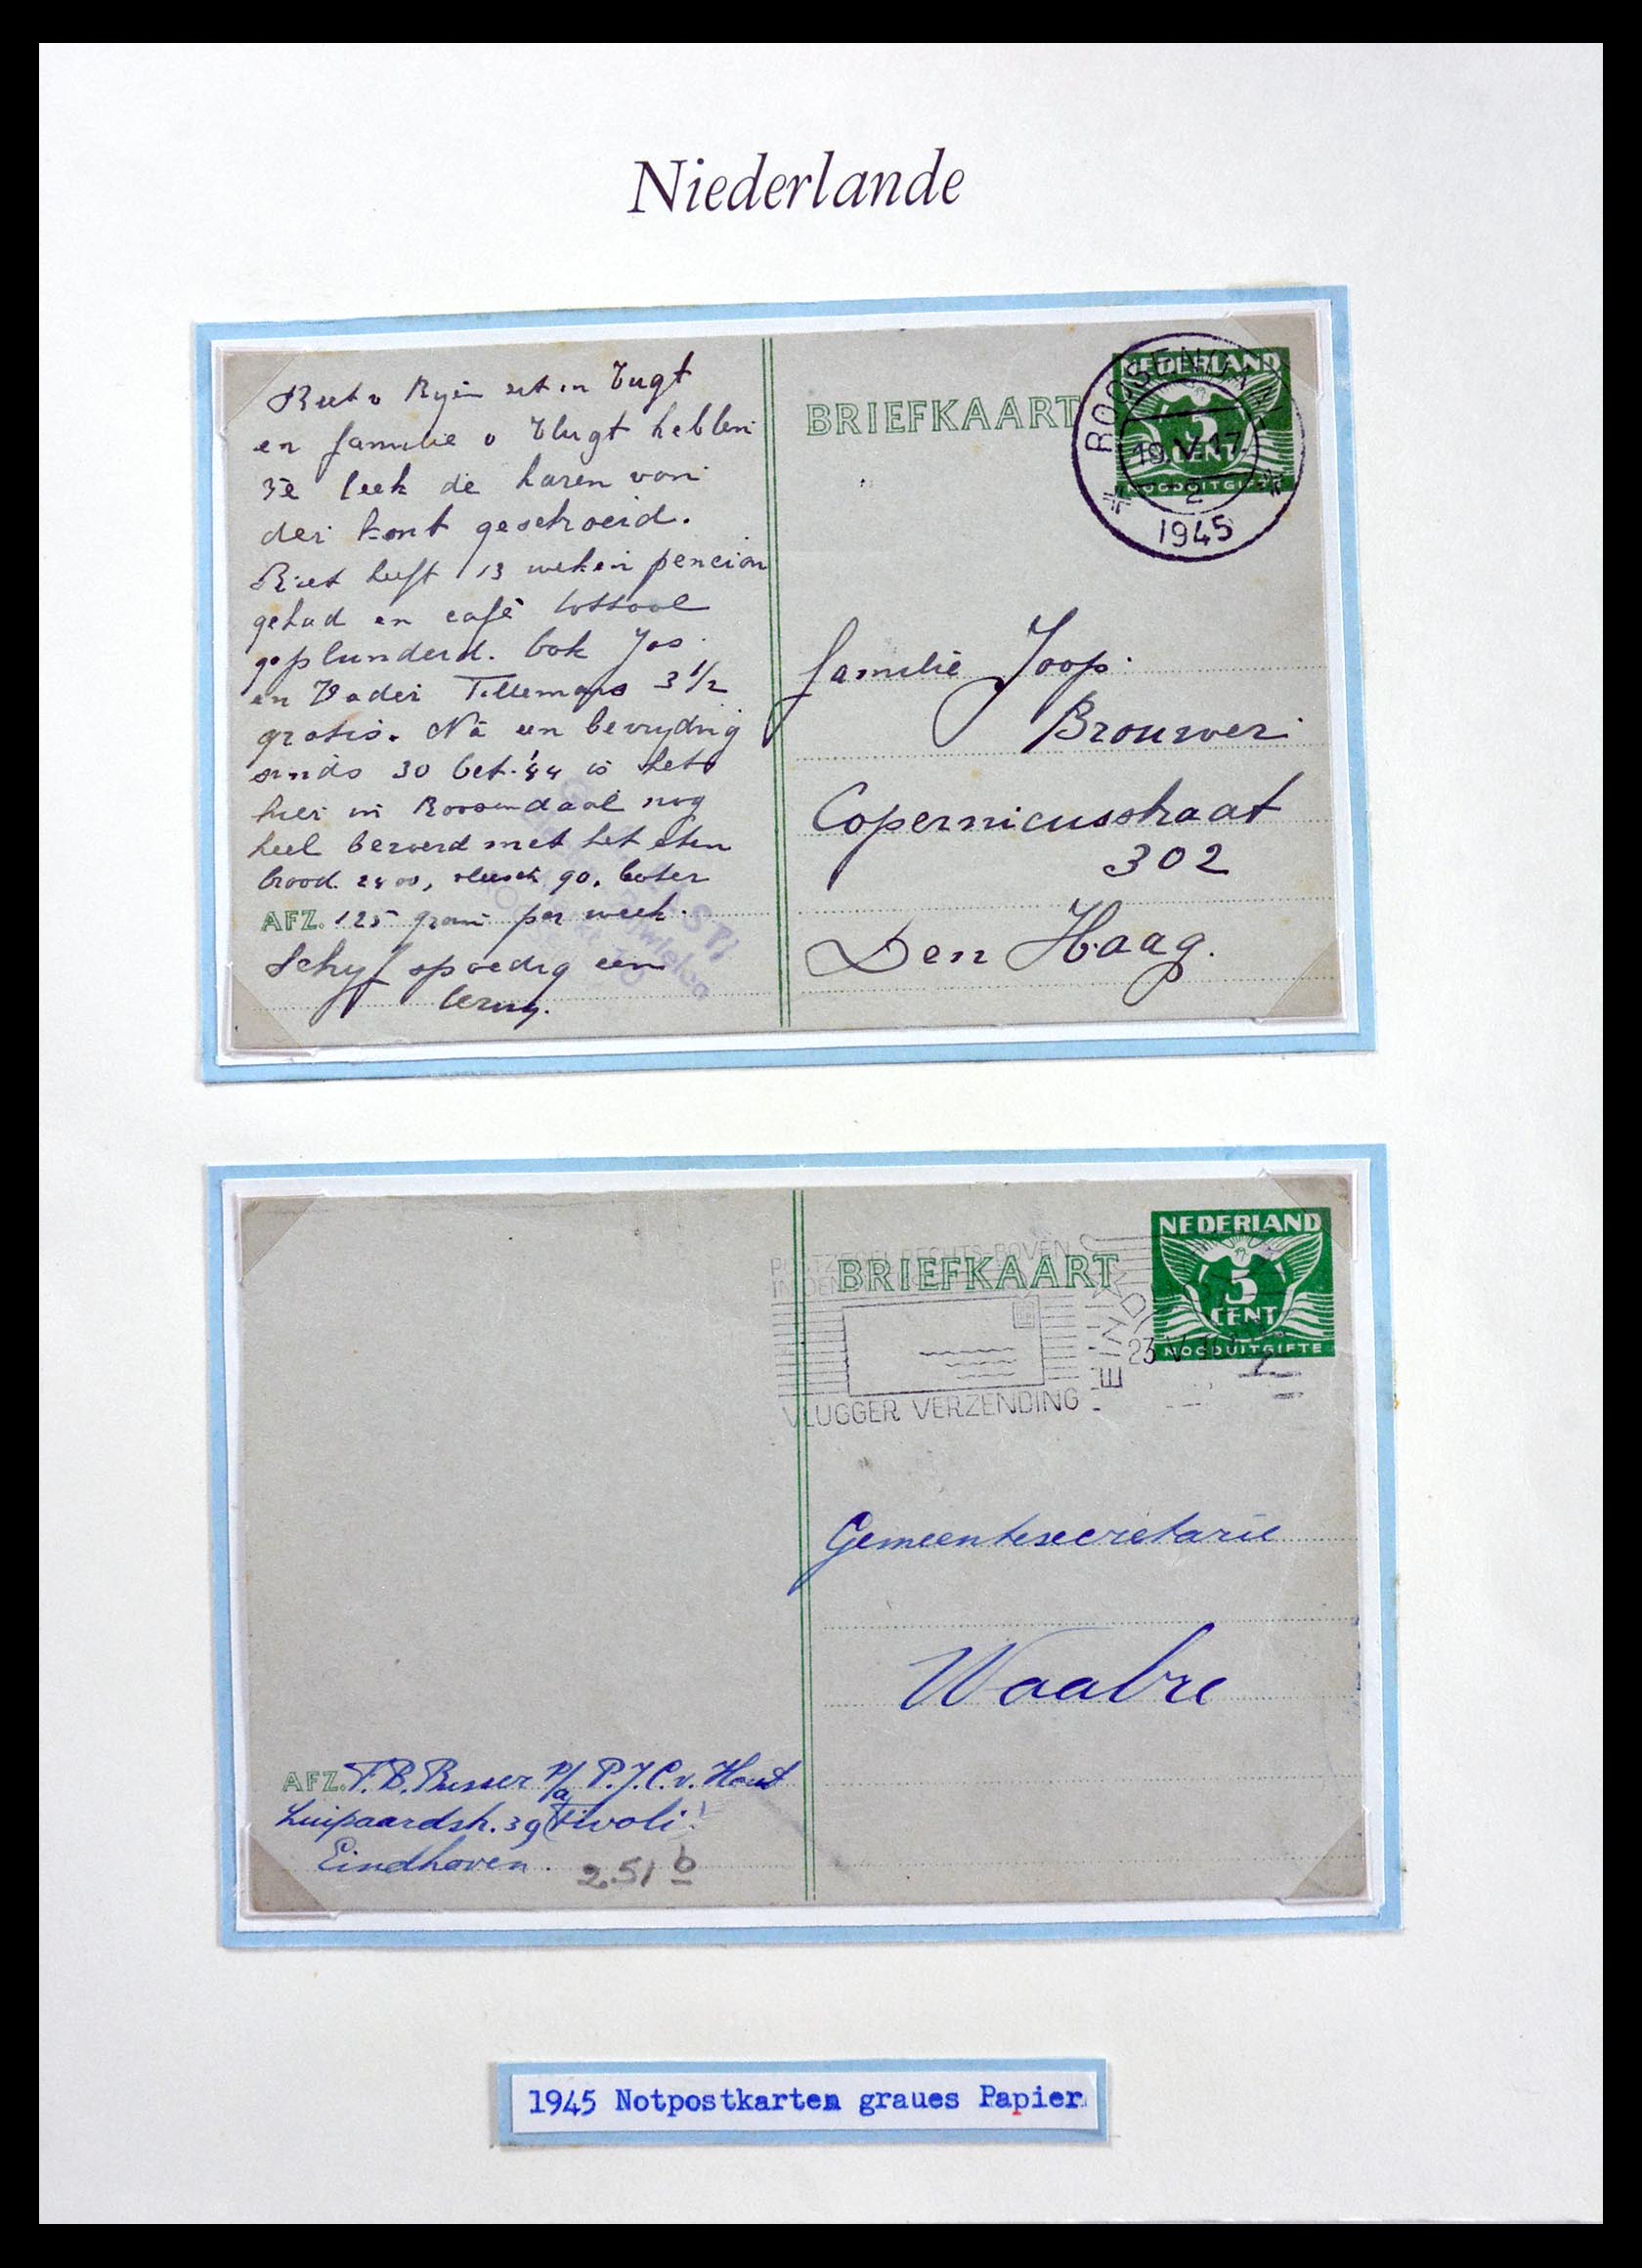 Niederlande
Riet v Ryen zit in Vugt
en familie v Vlugt hebben
de haren van
der kont geschroeid.
Riet heeft 13 weken pencion
gehad en café
geplunderd. Ook Jos
en Vader Tillemans 3 1/2
gratis. Na een bevrydng
sinds 30 Oct. '44 is het
hier in Roosendaal nog
heel beroerd met het eten
brood 2400, vleesch 90, boter
AFZ. 125 gram per week.
Schyf spoedig een
terug.
BRIEFKAART
NEDERLAND
5
CENT
NOODUITGIFTE
ROOSENDAAL
19.V.17
2
1945
familie Joop
Brouwer
Copernicusstraat
302
Den Haag.
POSTZEGEL RECHTS BOVEN
IN DEN
BRIEFKAART
VLUGGER VERZENDING
EINDHOVEN
23 V
NEDERLAND
5
CENT
NOODUITGIFTE
Gemeentesecretarie
Waalre
AFZ. F.B. Busser p/a P.J.C.v. Hout
Luipaardstr. 39 (Tivoli)
Eindhoven.
251 b
1945 Notpostkarten graues Papier